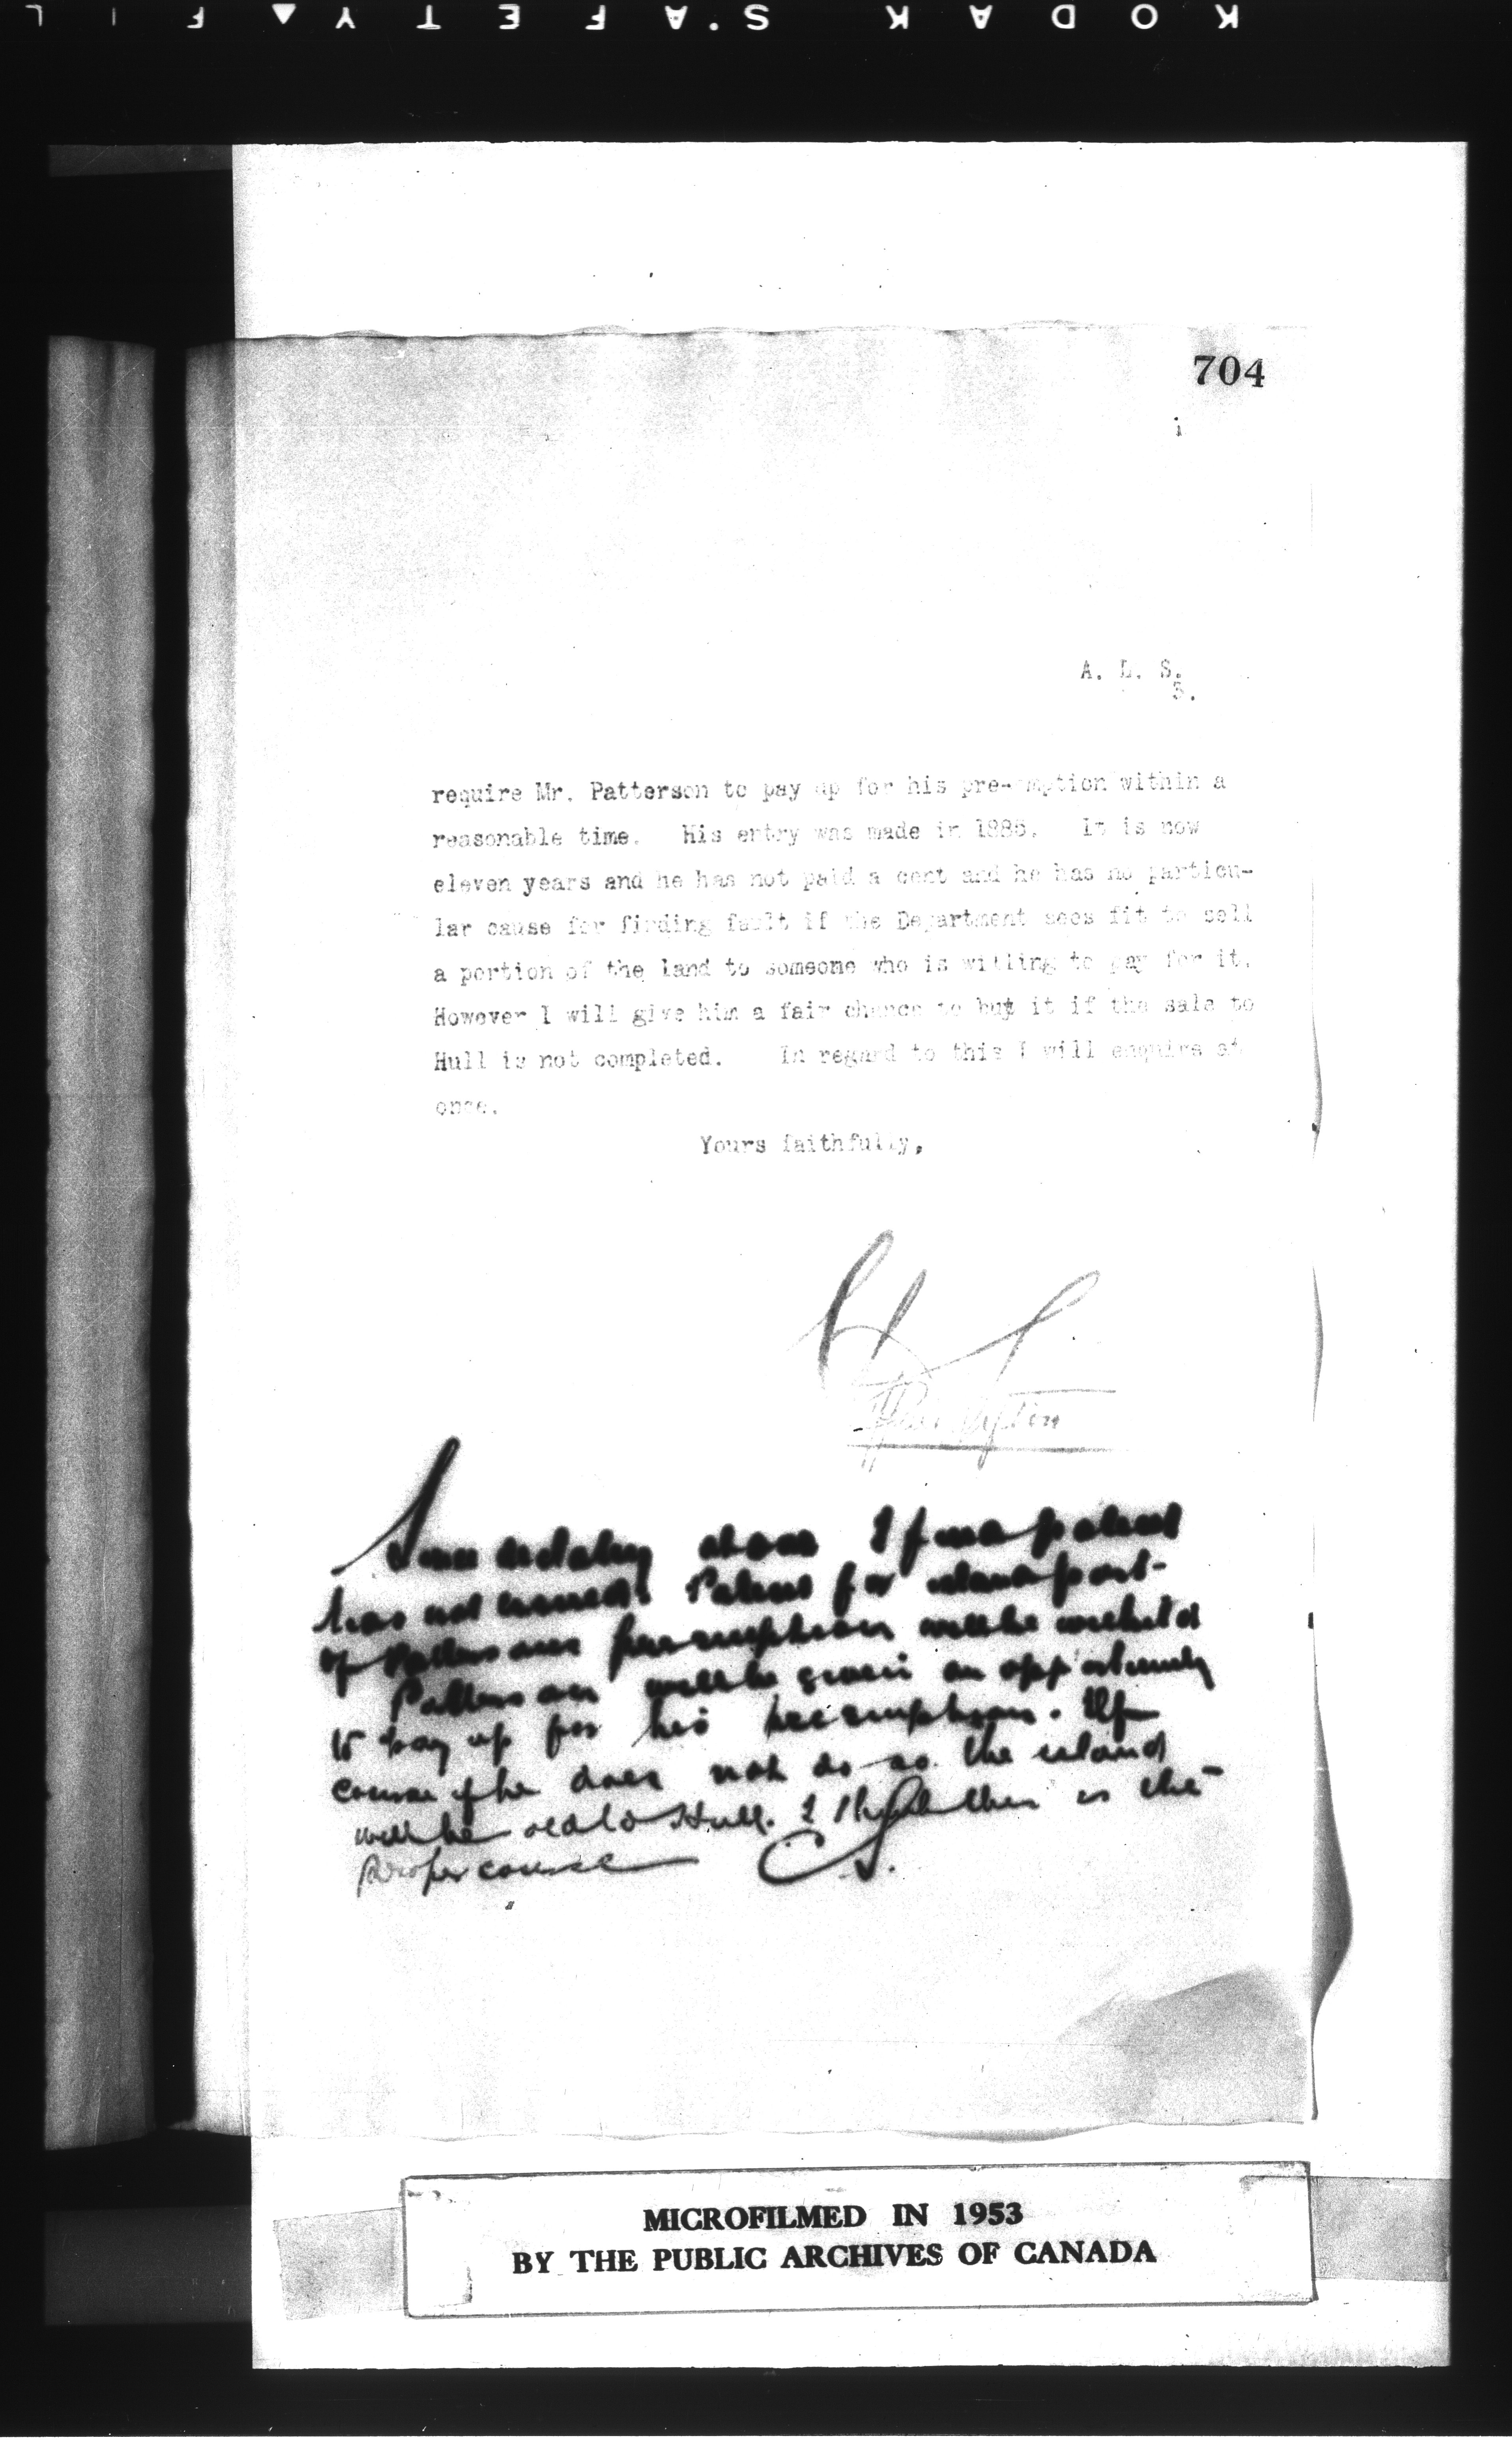 KODAK S.AFETY
704
A. L. S.
3.
require Mr. Patterson to pay up for his pre-emption within a
reasonable time. His entry was made in 1886. It is now
eleven years and he has not paid a cent and he has no particu-
lar cause for finding fault if the Department sees fit to sell
a portion of the land to someone who is willing to pay for it.
However I will give him a fair chance to but it if the sale to
Hull is not completed. In regard to this I will enquire at
once.
Yours faithfully,
above If patent
has not issued. Patent for island part
of Pattersons preemption will be withheld
Patterson will be given an opportunity
to pay up for his preemption. Of
course if he does not do so the island
will be sold to Hull. I this is the
proper course CS.
MICROFILMED IN 1953
BY THE PUBLIC ARCHIVES OF CANADA